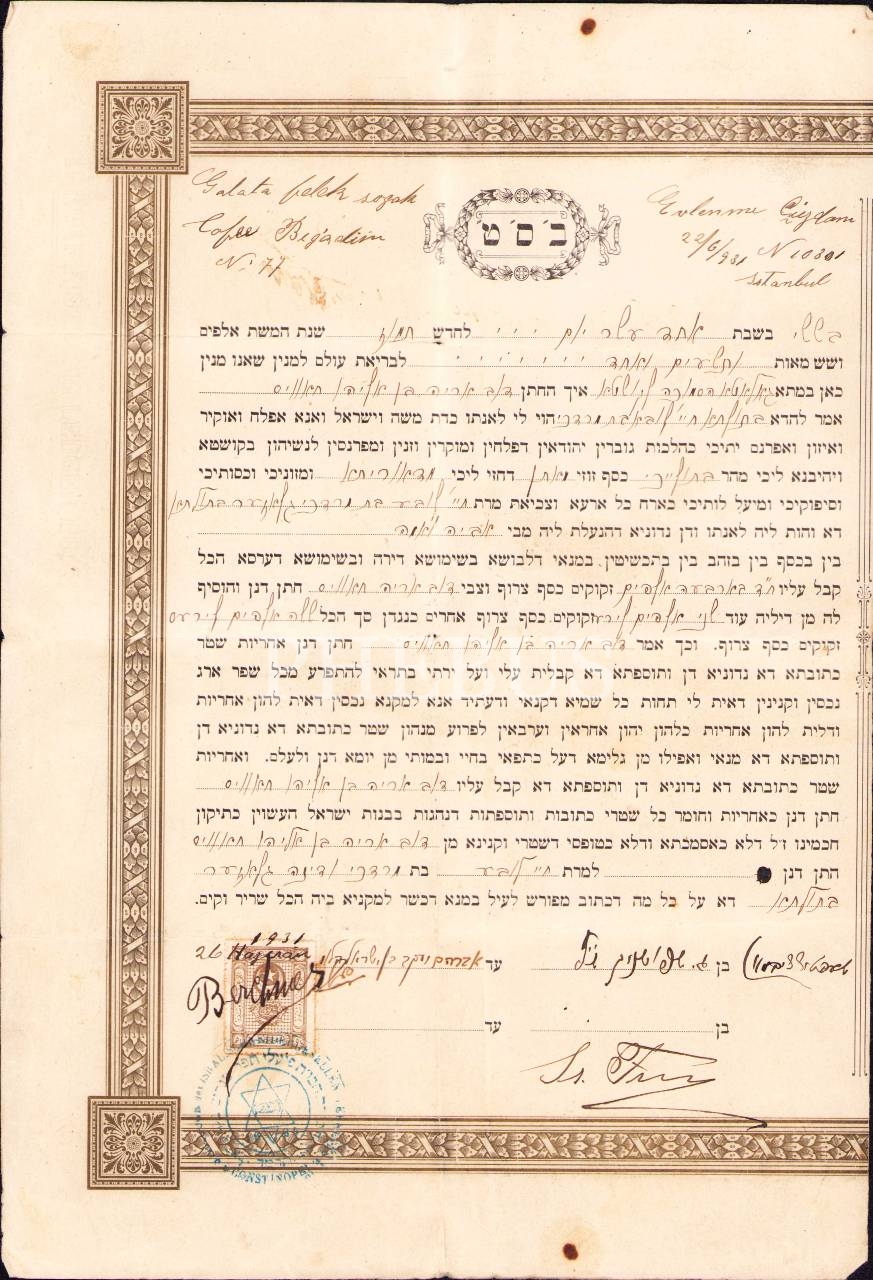 Galata felek sogak
No: 77
Evlenme Cüzdanı
22/6/931 N 10301
Istanbul
ב׳ס׳ט׳
בששי בשבת אחד עשר יום לחדש תמוז שנת חמשת אלפים
ושש מאות ותשעים ואחד לבריאת עולם למנין שאנו מנין
כאן במתא גאלאטא הסמוכה לקושטא איך החתן דוב אריה בן אליהו
אמר להדא בתולתא חיי׳ ליובא בת מרדכי הוי לי לאנתו כדת משה וישראל ואנא אפלח ואוקיר
ואיזון ואפרנס יתיכי כהלכות גוברין יהודאין דפלחין ומוקרין וזנין ומפרנסין לנשיהון בקושטא
ויהיבנא ליכי מהר בתולייכי כסף זוזי מאתן דחזי ליכי מדאורייתא ומזוניכי וכסותיכי
וסיפוקיכי ומיעל לותיכי כארח כל ארעא וצביאת מרת חיי׳ ליובע בת מרדכי גלאזער בתולתא
דא והות ליה לאנתו ודן נדוניא דהנעלת ליה מבי אביה ואמה
בין בכסף בין בזהב בין בתכשיטין במנאי דלבושא בשימושא דירה ובשימושא דערסא הכל
קבל עליו ח״ד בארבעה אלפים זקוקים כסף צרוף וצבי דוב אריה חתן דנן והוסיף
לה מן דיליה עוד שני אלפים לירעס זקוקים כסף צרוף אחרים כנגדן סך הכל ששה אלפים לירעס
זקוקים כסף צרוף. וכך אמר דוב אריה בן אליהו חתן דנן אחריות שטר
כתובתא דא נדוניא דן ותוספתא דא קבלית עלי ועל ירתי בתראי להתפרע מכל שפר ארג
נכסין וקנינין דאית לי תחות כל שמיא דקנאי ודעתיד אנא למקנא נכסין דאית להון אחריות
ודלית להון אחריות כלהון יהון אחראין וערבאין לפרוע מנהון שטר כתובתא דא נדוניא דן
ותוספתא דא מנאי ואפילו מן גלימא דעל כתפאי בחיי ובמותי מן יומא דנן ולעלם. ואחריות
שטר כתובתא דא נדוניא דן ותוספתא דא קבל עליו דוב אריה בן אליהו
חתן דנן כאחריות וחומר כל שטרי כתובות ותוספתות דנהגות בבנות ישראל העשוין כתיקון
חכמינו ז״ל דלא כאסמכתא ודלא כטופסי דשטרי וקנינא מן דוב אריה בן אליהו
חתן דנן למרת חיי׳ ליובע בת מרדכי ודינה גלאזער
בתולתא דא על כל מה דכתוב מפורש לעיל במנא דכשר למקניא ביה הכל שריר וקים.
בן עד אברהם יעקב בן ישראל
בן עד
26 Haziran 1931
CONSTANTINOPLE